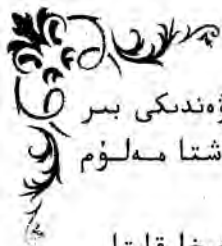 ۆۋەندىكى بىر
شتا مەلـۇم